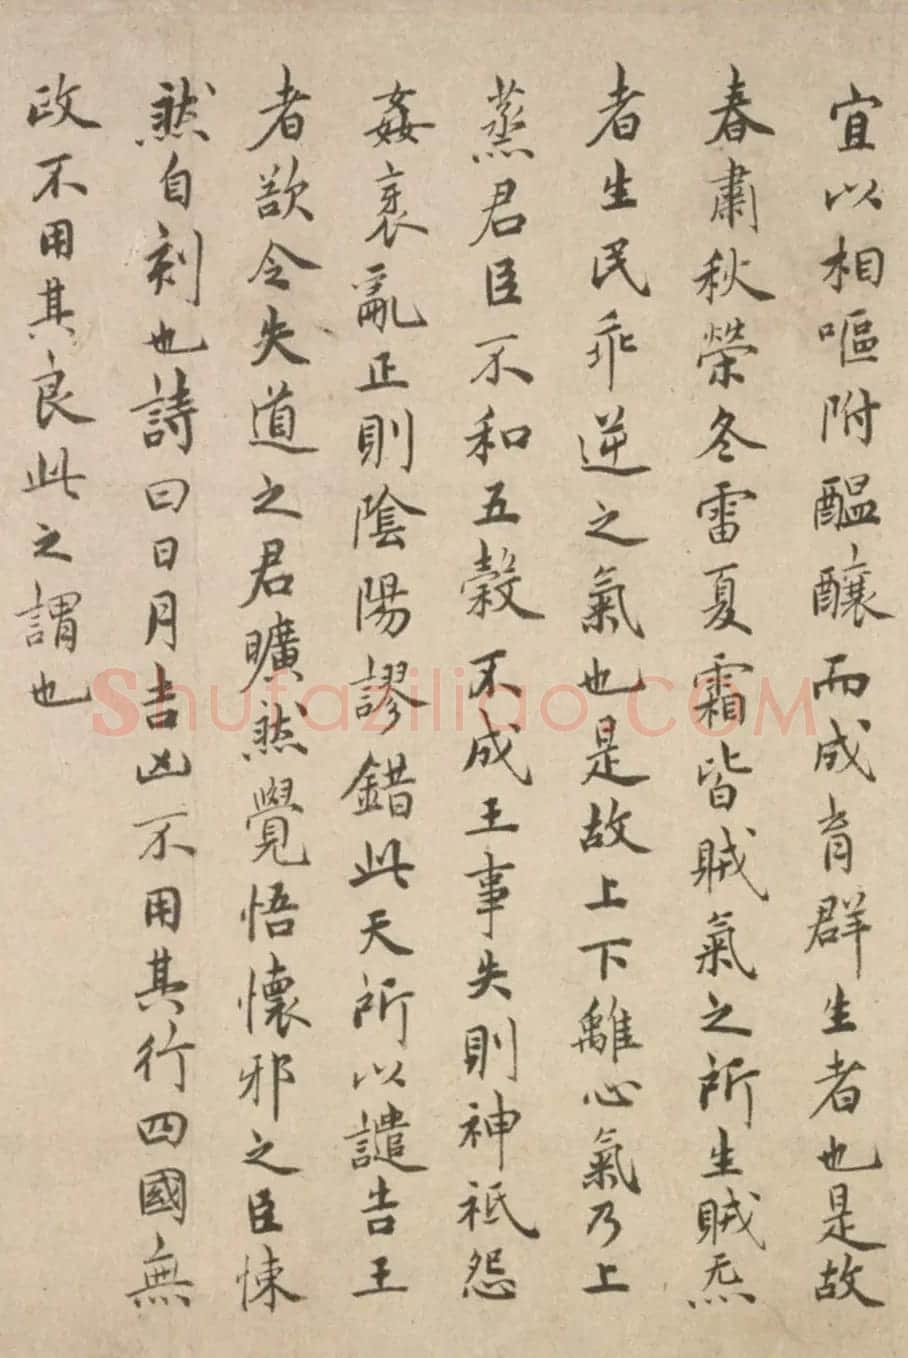 宜以相嘔附醞釀而成育群生者也是故
春肅秋榮冬雷夏霜皆賊氣之所生賊炁
者生民乖逆之氣也是故上下離心氣乃上
蒸君臣不和五穀不成王事失則神祇怨
姦衺亂正則陰陽謬錯此天所以譴告王
者欲令失道之君曠然覺悟懷邪之臣悚
然自刻也詩曰日月吉凶不用其行四國無
政不用其良此之謂也
Shufaziliao.COM